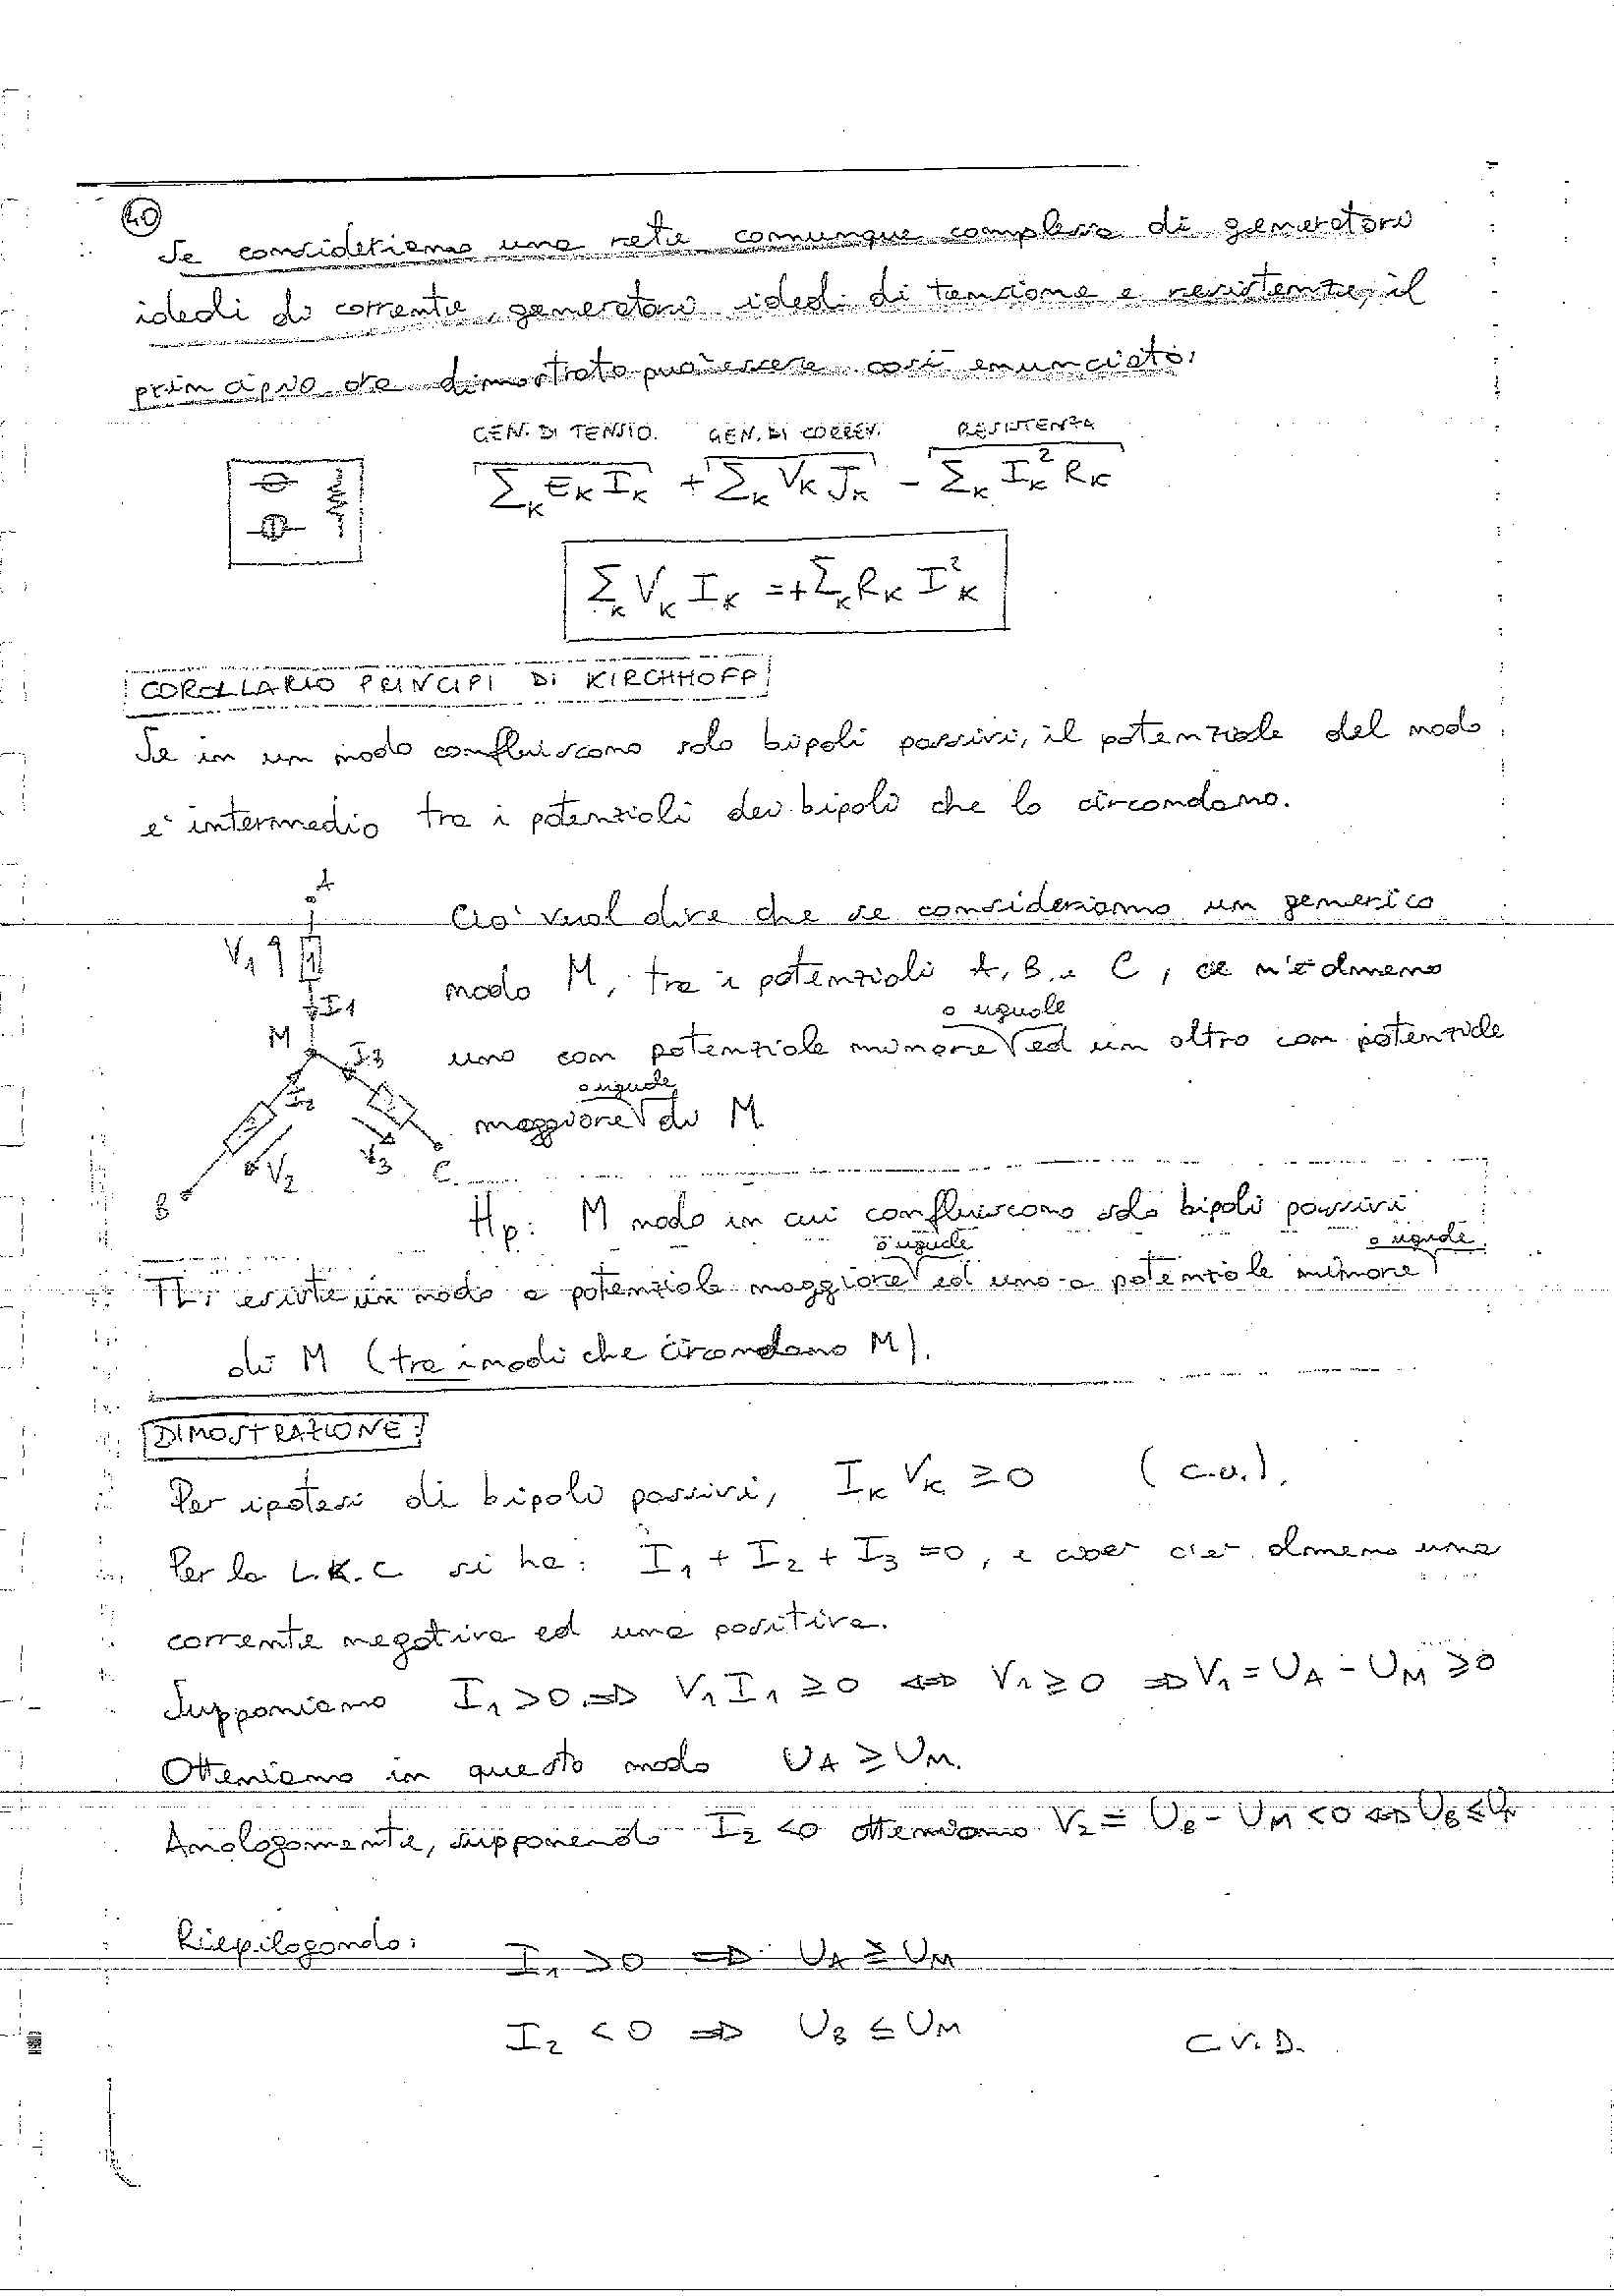 40
Se consideriamo una rete comunque complessa di generatori
ideali di corrente, generatori ideali di tensione e resistenze, il
principio ora dimostrato può essere così enunciato:
GEN. DI TENSIO. GEN. DI CORREN. RESISTENZA
∑_K E_K I_K + ∑_K V_K J_K - ∑_K I_K^2 R_K
∑_K V_K I_K = + ∑_K R_K I_K^2
COROLLARIO PRINCIPI DI KIRCHHOFF
Se in un nodo confluiscono solo bipoli passivi, il potenziale del nodo
e' intermedio tra i potenziali dei bipoli che lo circondano.
A
V1 I1 M I3 I2 V2 V3 B C
Cio' vuol dire che se consideriamo un generico
nodo M, tra i potenziali A, B e C, ce n'è almeno
uno con potenziale minore o uguale ed un altro con potenziale
maggiore o uguale di M
Hp: M nodo in cui confluiscono solo bipoli passivi
Th: esiste un nodo a potenziale maggiore o uguale ed uno a potenziale minore o uguale
di M (tra i nodi che circondano M).
DIMOSTRAZIONE:
Per ipotesi di bipoli passivi, I_K V_K ≥ 0 (c.u.).
Per la L.K.C si ha: I1 + I2 + I3 = 0, e cioe' c'e' almeno una
corrente negativa ed una positiva.
Supponiamo I1 > 0 ⇒ V1 I1 ≥ 0 ⇔ V1 ≥ 0 ⇒ V1 = U_A - U_M ≥ 0
Otteniamo in questo modo U_A ≥ U_M.
Analogamente, supponendo I2 < 0 otteniamo V2 = U_B - U_M < 0 ⇔ U_B ≤ U
Riepilogando: I1 > 0 ⇒ U_A ≥ U_M
I2 < 0 ⇒ U_B ≤ U_M
C.V.D.